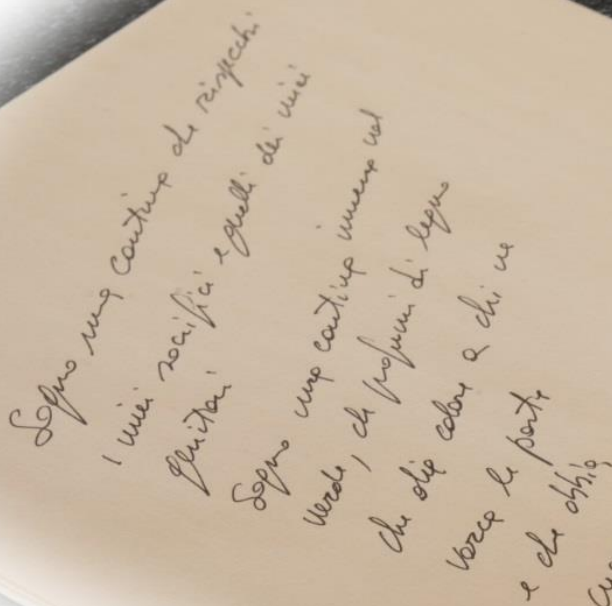 Sogno una cantina che rispecchi
i miei sacrifici e quelli dei miei
genitori
Sogno una cantina immersa nel
verde, che profumi di legno
che dia calore a chi ne
varca le porte
e che abbia